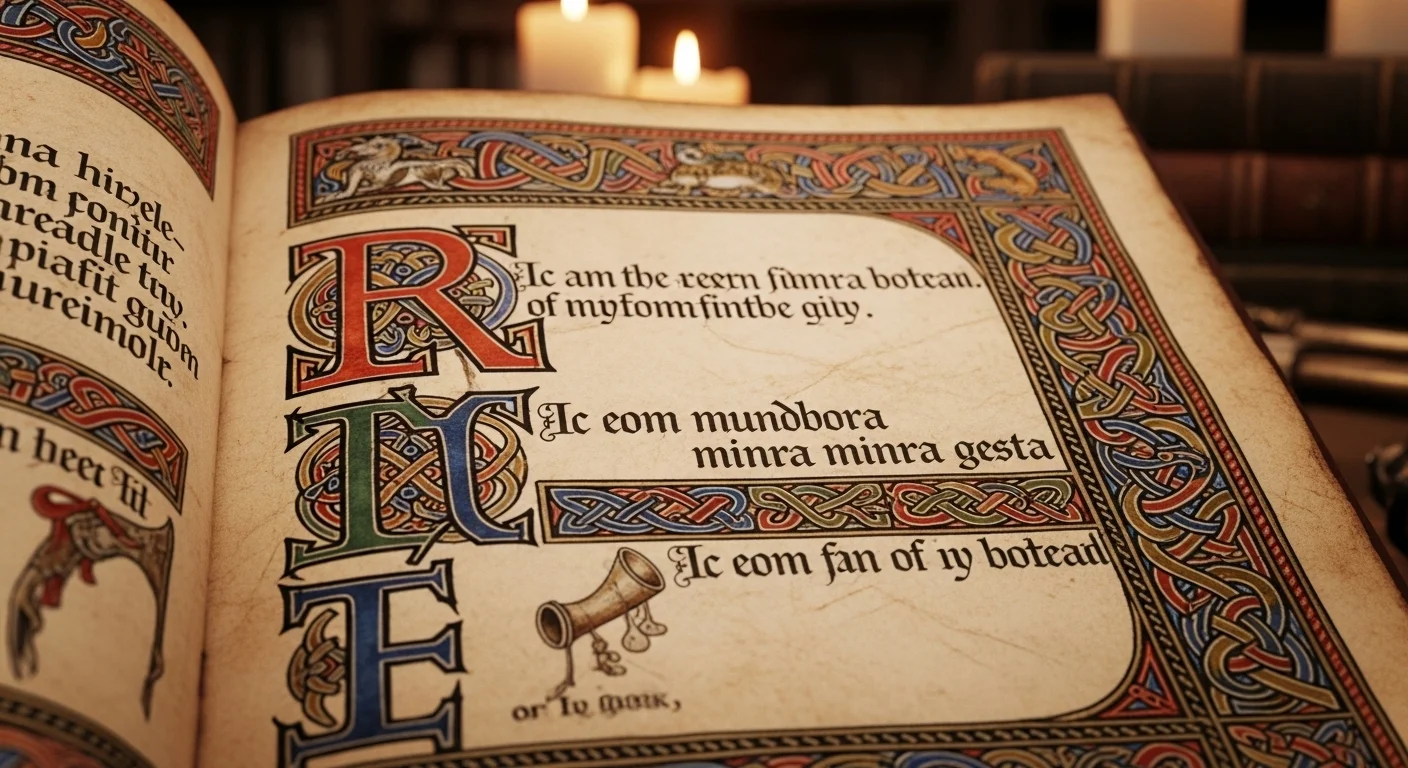 na hirele-
om fonitir
readle tuy.
piafit guden
ureimolr.
n beet Tit
R
Ic am the reern fümra botean.
of myfomfintbe gily.
Ic eom mundbora
minra minra gesta
Ic eom fan of iy botead
E
or Iu